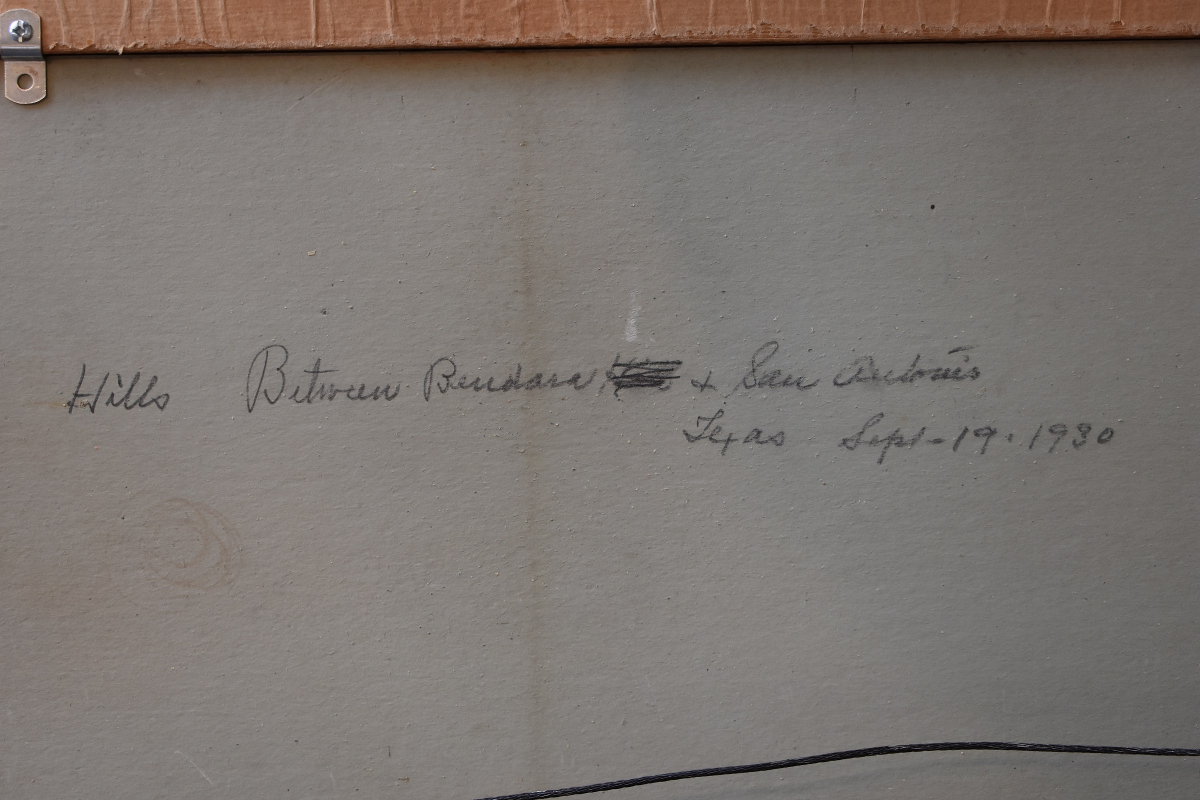 Hills Between Bendara + San Antonio
Texas Sept-19-1930